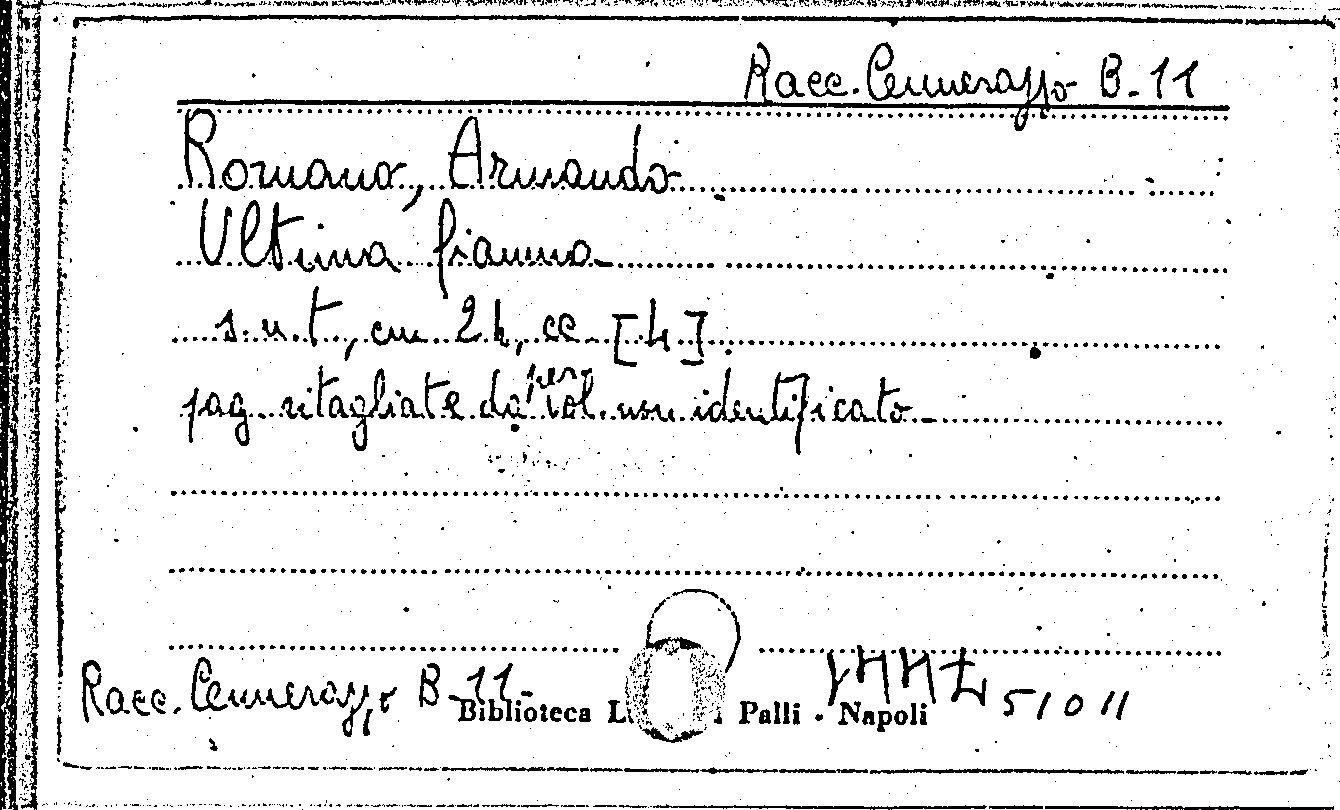 Racc. Cennerazzo B-11
Romano, Armando
Ultima fiamma
s.n.t, cm 24, cc [4]
per
pag ritagliate da vol. non identificato
Racc. Cennerazzo B-11-
Biblioteca L i Palli - Napoli
51011